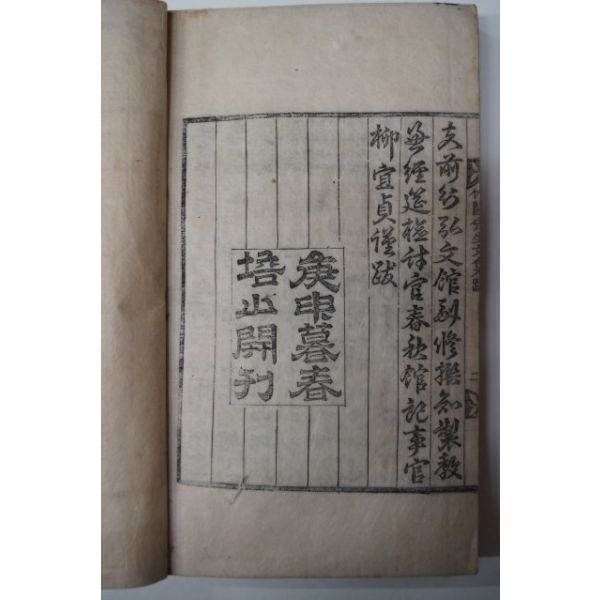 夫前行弘文館副修撰知製教
兼經筵檢討官春秋館記事官
柳宜貞謹跋
庚申暮春
培山開刊